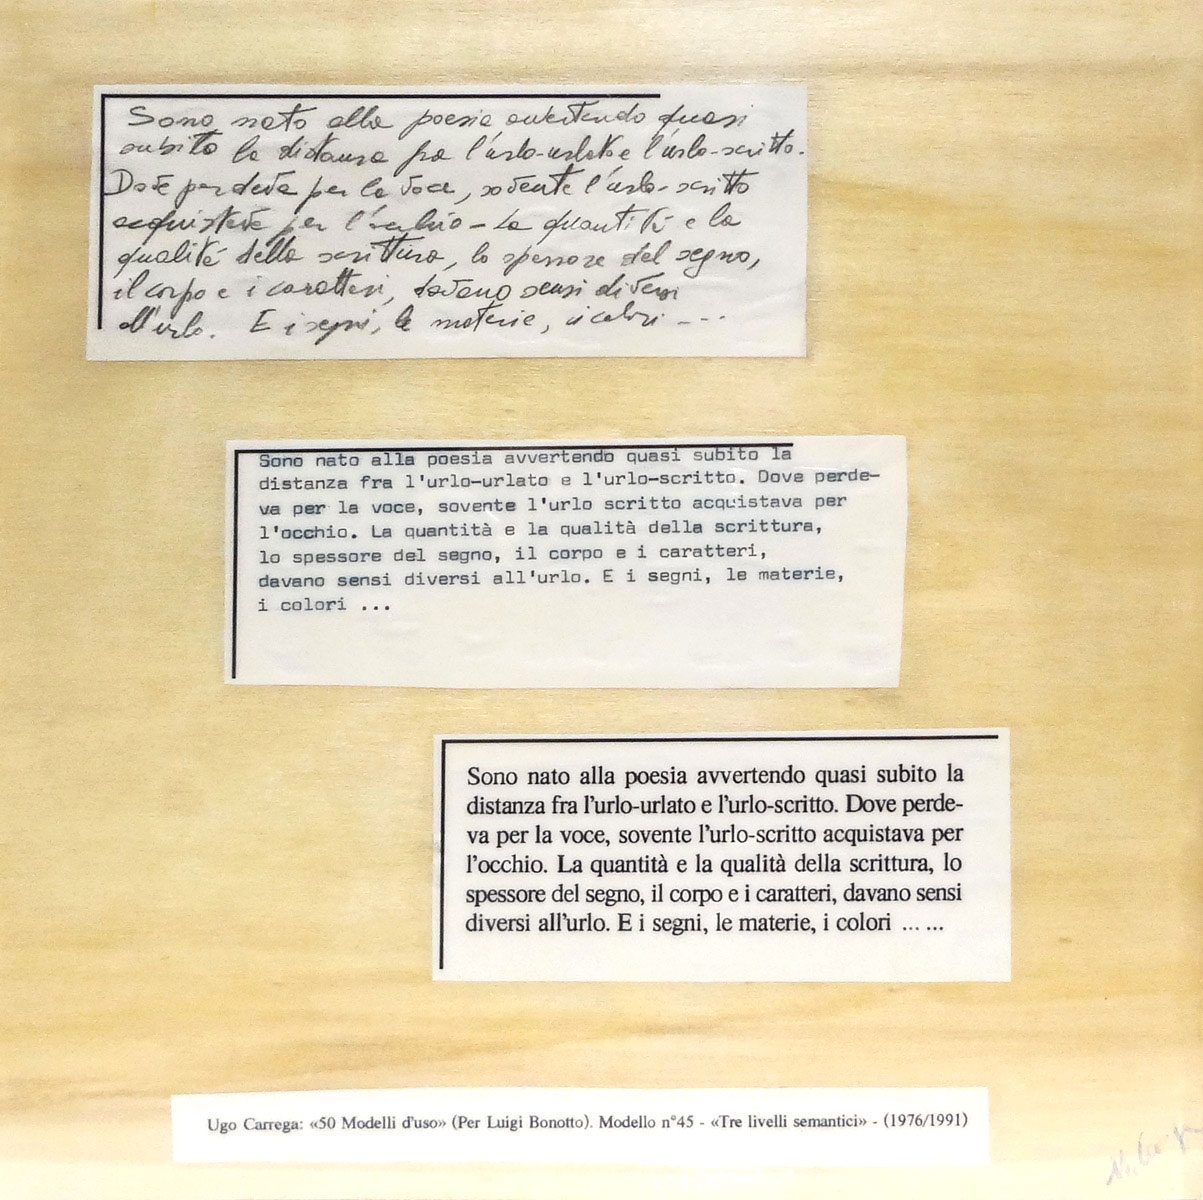 Sono nato alla poesia avvertendo quasi
subito la distanza fra l'urlo-urlato e l'urlo-scritto.
Dove perdeva per la voce, sovente l'urlo-scritto
acquistava per l'occhio - La quantità e la
qualità della scrittura, lo spessore del segno,
il corpo e i caratteri, davano sensi diversi
all'urlo. E i segni, le materie, i colori ---
Sono nato alla poesia avvertendo quasi subito la
distanza fra l'urlo-urlato e l'urlo-scritto. Dove perde-
va per la voce, sovente l'urlo scritto acquistava per
l'occhio. La quantità e la qualità della scrittura,
lo spessore del segno, il corpo e i caratteri,
davano sensi diversi all'urlo. E i segni, le materie,
i colori ...
Sono nato alla poesia avvertendo quasi subito la
distanza fra l'urlo-urlato e l'urlo-scritto. Dove perde-
va per la voce, sovente l'urlo-scritto acquistava per
l'occhio. La quantità e la qualità della scrittura, lo
spessore del segno, il corpo e i caratteri, davano sensi
diversi all'urlo. E i segni, le materie, i colori ... ...
Ugo Carrega: «50 Modelli d'uso» (Per Luigi Bonotto). Modello n°45 - «Tre livelli semantici» - (1976/1991)